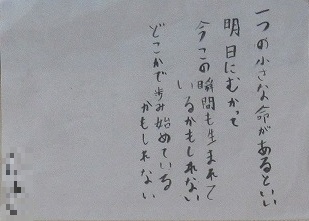 一つの小さな命があるといい
明日にむかって
今この瞬間も生まれて
いるかもしれない
どこかで歩み始めている
かもしれない